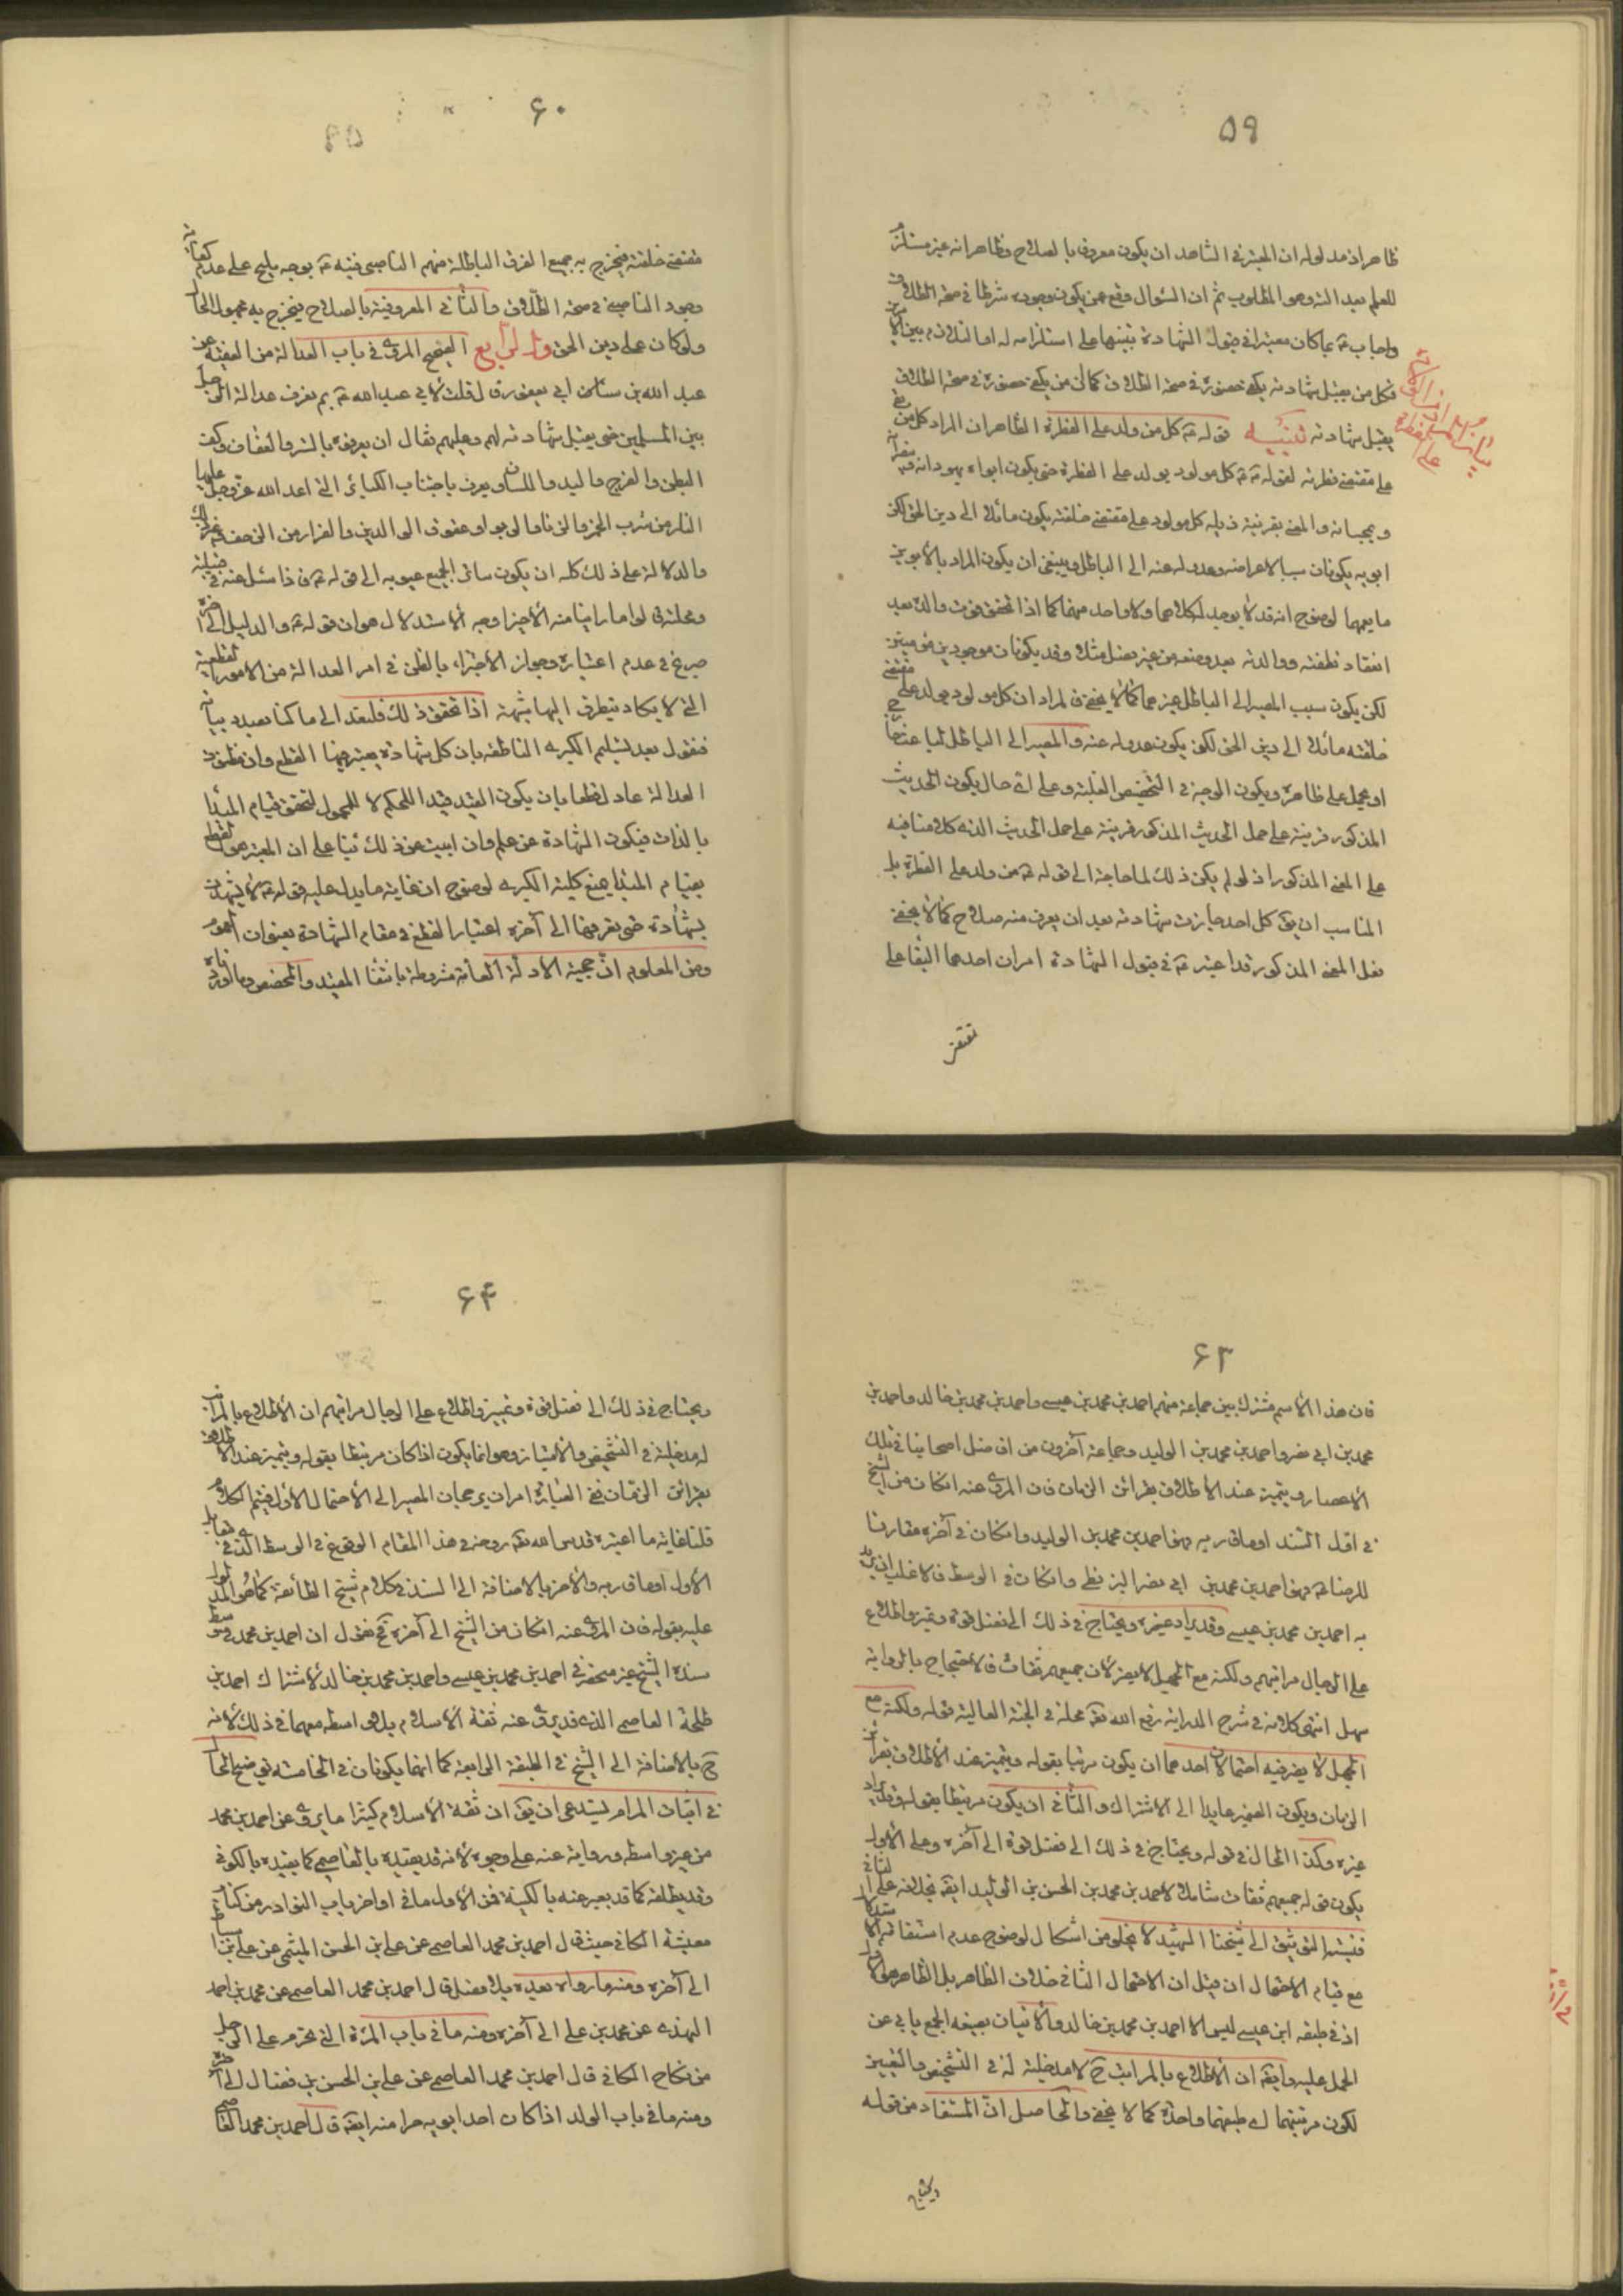 ٥٩
ظاهر اذ مدلوله ان المعتبر فى الشاهد ان يكون معروفا بالصلاح وظاهر انه غير مستلزم
للعلم بعد الته وهو المطلوب ثم ان السئوال وقع عمن يكون وجوده شرطا فى صحة الطلاق
واجاب ع بما كان معتبرا فى قبول الشهادة تنبيها على استلزامه له او التلازم بين الامرين
فكل من يقبل شهادته يكفى حضوره فى صحة الطلاق كما ان من يكفى حضوره فى صحة الطلاق
يقبل شهادته تنبيه قوله ع كل من ولد على الفطرة الظاهر ان المراد كل من بقى
على مقتضى فطرته لقوله ع كل مولود يولد على الفطرة حتى يكون ابواه يهودانه وينصرانه
ويمجسانه والمعنى بقرينة ذيله كل مولود على مقتضى خلقته يكون مائلا الى دين الحق لكن
ابويه يكونان سببا لاعراضه وعدوله عنه الى الباطل وينبغى ان يكون المراد بالأبوين
ما يعمهما لوضوح انه قد لا يوجد لكلاهما ولا واحد منهما كما اذا تحقق فوت والده بعد
انعقاد نطفته ووالدته بعد وضعه من غير فصل مثلا وقد يكونان موجودين مؤمنين
لكن يكون سبب المصير الى الباطل غيرهما كما لا يخفى فالمراد ان كل مولود يولد على مقتضى
خلقته مائلا الى دين الحق لكن يكون عدوله عنه والمصير الى الباطل لما عنه
او يحمل على ظاهره ويكون الوجه فى التخصيص الغلبة وعلى اى حال يكون الحديث
المذكور قرينة على حمل الحديث المذكور قرينة على حمل الحديث الذى كلامنا فيه
على المعنى المذكور اذ لو لم يكن ذلك لما حاجة الى قوله ع من ولد على الفطرة بل
المناسب ان يق كل احد جازت شهادته بعد ان يعرف منه صلاح كما لا يخفى
فعلى المعنى المذكور قد اعتبر ع فى قبول الشهادة امران احدهما البقا على
٦٠
مقتضى خلقته فيخرج به جميع الفرق الباطلة منهم الناصبى فنبه ع بوجه بليغ على عدم كفاية
وجود الناصبى فى صحة الطلاق والثانى المعروفية بالصلاح فيخرج به مجهول الحال
ولو كان على دين الحق والرابع الصحيح المروى فى باب العدالة من الفقيه عن
عبد الله بن سنان ابى يعفور قال قلت لابى عبد الله ع بم تعرف عدالة الرجل
بين المسلمين حتى يقبل شهادته لهم وعليهم فقال ان يعرفوه بالستر والعفاف وكف
البطن والفرج واليد واللسان ويعرف باجتناب الكبائر التى اعد الله عز وجل عليها
النار من شرب الخمر والزنا والربو او عقوق الوالدين والفرار من الزحف وغير ذلك
والدلالة على ذلك كله ان يكون ساترا لجميع عيوبه الى قوله ع فاذا سئل عنه فى قبيلته
ومحلته قالوا ما راينا منه الا خيرا وجه الاستدلال هو ان قوله ع والدليل الى آخره
صريح فى عدم اعتباره وجواز الاجتزاء بالظن فى امر العدالة من الامور القطعية
التى لا يكاد يتطرق اليها شبهة اذا تحقق ذلك فلنعد الى ما كنا بصدد بيانه
فنقول بعد تسليم الكبرى الناطقة بان كل شهادة يعتبر فيها القطع وان مظنون
العدالة عادل قطعا بان يكون القيد قيدا للحكم لا للمحمول لتحقق قيام المبدا
بالذات فيكون الشهادة عن علم وان ابيت عن ذلك بنا على ان المعتبر هو القطع
بقيام المبدا يمنع كلية الكبرى لوضوح ان غاية ما يدل عليه قوله ع لا تشهدن
بشهادة حتى تعرفها الى آخره اعتبار القطع فى مقام الشهادة بعنوان العموم
ومن المعلوم ان حجية الادلة العامة مشروطة بانتفا المقيد والمخصص وما اوردناه
٦٣
فان هذا الاسم مشترك بين جماعة منهم احمد بن محمد بن عيسى واحمد بن محمد بن خالد واحمد بن
محمد بن ابى نصر واحمد بن محمد بن الوليد وجماعة آخرون من افاضل اصحابنا فى تلك
الاعصار ويتميز عند الاطلاق بقرائن الزمان فان المروى عنه ان كان من الشيخ
فى اول السند او ما قاربه فهو احمد بن محمد بن الوليد وان كان فى آخره مقارنا
للرضا ع فهو احمد بن محمد بن ابى نصر البزنطى وان كان فى الوسط فالاغلب ان يريد
به احمد بن محمد بن عيسى وقد يراد غيره ويحتاج فى ذلك الى فضل قوة وتميز واطلاع
على الرجال ومراتبهم ولكنه مع الجهل لا يضر لان جميعهم ثقات فالاحتجاج بالرواية
سهل انتهى كلامه فى شرح الدراية رفع الله تعه محله فى الجنة العالية قوله ولكنه مع
الجهل لا يضر فيه احتمالان احدهما ان يكون مرتبا بقوله ويتميز عند الاطلاق بقرائن
الزمان ويكون الضمير عايدا الى الاشتراك والثانى ان يكون مرتبطا بقوله وقد يراد
غيره وكذا الحال فى قوله ويحتاج فى ذلك الى فضل قوة الى آخره وعلى الاول
يكون قوله جميعهم ثقات شاملا لاحمد بن محمد بن الحسن بن الوليد ايضه بخلافه على الثانى
فنسبة التوثيق الى شيخنا الشهيد لا يخلو من اشكال لوضوح عدم استقامة الاستدلال
مع قيام الاحتمال ان قيل ان الاحتمال الثانى خلاف الظاهر بل الظاهر هو الاول
اذ فى طبقه ابن عيسى ليس الا احمد بن محمد بن خالد والاتيان بصيغه الجمع يابى عن
الحمل عليه وايضه ان الاطلاع بالمراتب ح لا مدخلية له فى التشخيص والتعيين
لكون مرتبتهما اى طبقتهما واحدة كما لا يخفى والحاصل ان المستفاد من قوله
ويحتاج
٦٤
ويحتاج فى ذلك الى فضل قوة وتمييز واطلاع على الرجال ومراتبهم ان الاطلاع بالمراتب
له مدخلية فى التشخيص والامتياز وهو انما يكون اذا كان مرتبطا بقوله ويتميز عند الاطلاق
بقرائن الزمان ففى العبارة امران يرجحان المصير الى الاحتمال الاول فيتم الكلام
قلنا غاية ما اعتبره قدس الله تعه روحه فى هذا المقام الوقوع فى الوسط الذى فى مقابل
الاول او ما قاربه والآخر بالاضافة الى السند فى كلام شيخ الطائفة كما هو المدلول
عليه بقوله فان المروى عنه ان كان من الشيخ الى آخره فح نقول ان احمد بن محمد فى وسط
سند الشيخ غير منحصر فى احمد بن محمد بن عيسى واحمد بن محمد بن خالد لاشتراك احمد بن
طلحة العاصمى الذى قد يروى عنه ثقة الاسلام بلا واسطه معهما فى ذلك لانه
ح بالاضافة الى الشيخ فى الطبقة الرابعة كما انهما يكونان فى الخامسه توضيح الحال
فى اثبات المرام يستدعى ان يق ان ثقة الاسلام كثيرا ما يروى عن احمد بن محمد
من غير واسطه وروايته عنه على وجوه لانه قد يقيده بالعاصمى كما يقيده بالكوفى
وقد يطلقه كما قد يعبر عنه بالكنية فمن الاول ما فى اواخر باب النوادر من كتاب
معيشة الكافى حيث قال احمد بن محمد العاصمى عن على بن الحسن الميثمى عن على بن اسباط
الى آخره ومنه ما رواه بعيده بلا فصل قال احمد بن محمد العاصمى عن محمد بن احمد
النهدى عن محمد بن على الى آخره ومنه ما فى باب المرئة التى تحرم على الرجل
من نكاح الكافى قال احمد بن محمد العاصمى عن على بن الحسن بن فضال الى آخره
ومنه ما فى باب الولد اذا كان احد ابويه حرا منه ايضه قال احمد بن محمد العاصمى